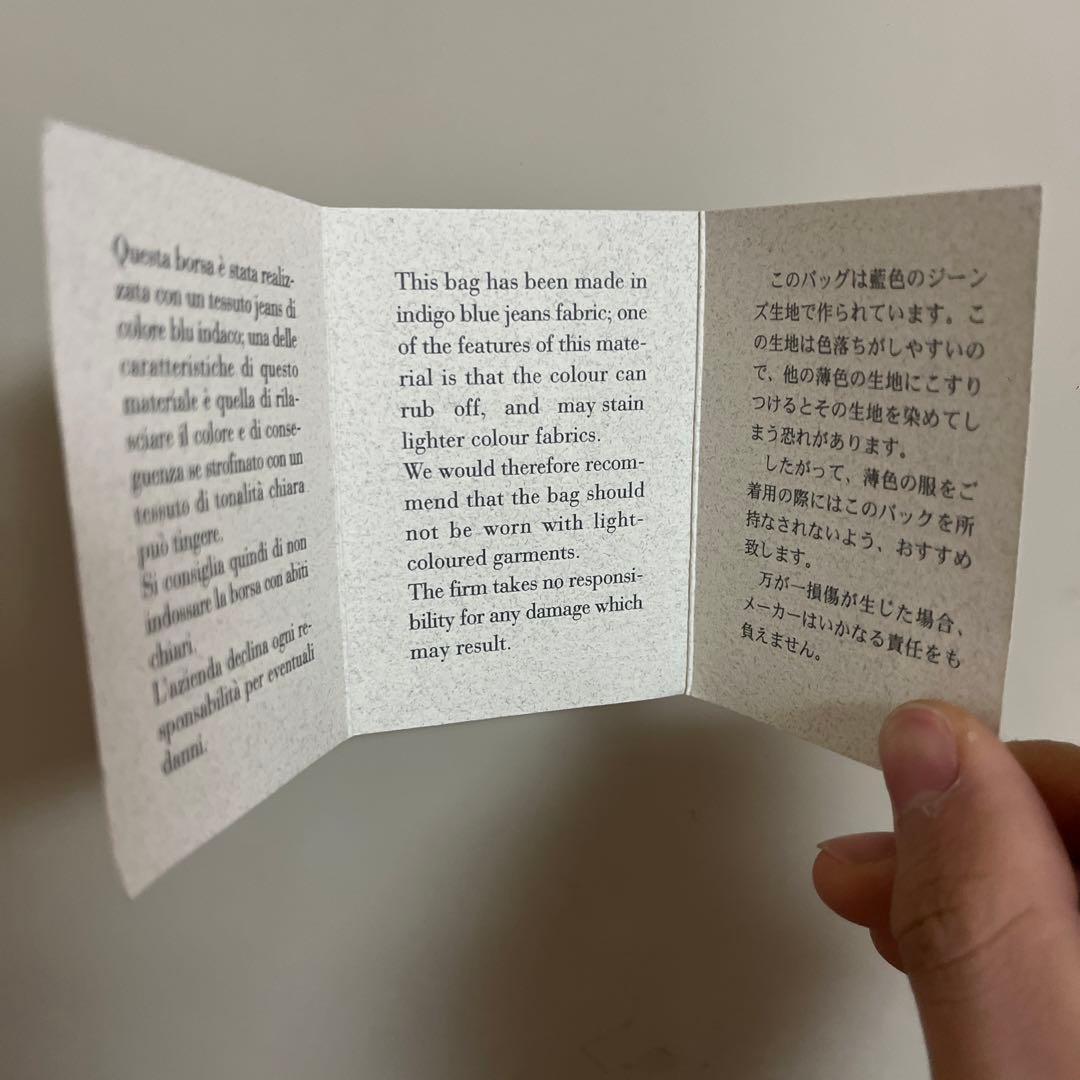 Questa borsa è stata realiz-
zata con un tessuto jeans di
colore blu indaco; una delle
caratteristiche di questo
materiale è quella di rila-
sciare il colore e di conse-
guenza se strofinato con un
tessuto di tonalità chiara
può tingere.
Si consiglia quindi di non
indossare la borsa con abiti
chiari.
L'azienda declina ogni re-
sponsabilità per eventuali
danni.
This bag has been made in
indigo blue jeans fabric; one
of the features of this mate-
rial is that the colour can
rub off, and may stain
lighter colour fabrics.
We would therefore recom-
mend that the bag should
not be worn with light-
coloured garments.
The firm takes no responsi-
bility for any damage which
may result.
このバッグは藍色のジーン
ズ生地で作られています。こ
の生地は色落ちがしやすいの
で、他の薄色の生地にこすり
つけるとその生地を染めてし
まう恐れがあります。
したがって、薄色の服をご
着用の際にはこのバックを所
持なされないよう、おすすめ
致します。
万が一損傷が生じた場合、
メーカーはいかなる責任をも
負えません。